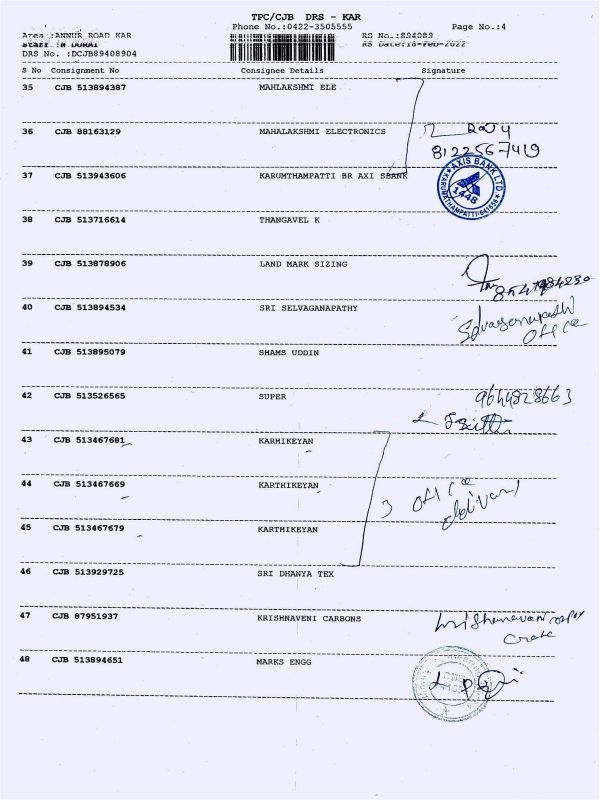 TPC/CJB DRS - KAR
Phone No.:0422-3505555 Page No.:4
Area :ANNUR ROAD KAR RS No.:894089
Staff :N DURAI RS Date:18-Feb-2022
DRS No. :DCJB89408904
S No Consignment No Consignee Details Signature
35 CJB 513894387 MAHLAKSHMI ELE
36 CJB 88163129 MAHALAKSHMI ELECTRONICS
8122567419
37 CJB 513943606 KARUMTHAMPATTI BR AXI SBANK
AXIS BANK LTD
1448
KARUMATHAMPATTI-641659
38 CJB 513716614 THANGAVEL K
39 CJB 513878906 LAND MARK SIZING
40 CJB 513894534 SRI SELVAGANAPATHY
Selvaganapathi
office
41 CJB 513895079 SHAMS UDDIN
42 CJB 513526565 SUPER
9644828663
43 CJB 513467681 KARHIKEYAN
44 CJB 513467669 KARTHIKEYAN
3 office
45 CJB 513467679 KARTHIKEYAN
46 CJB 513929725 SRI DHANYA TEX
47 CJB 87951937 KRISHNAVENI CARBONS
48 CJB 513894651 MARKS ENGG